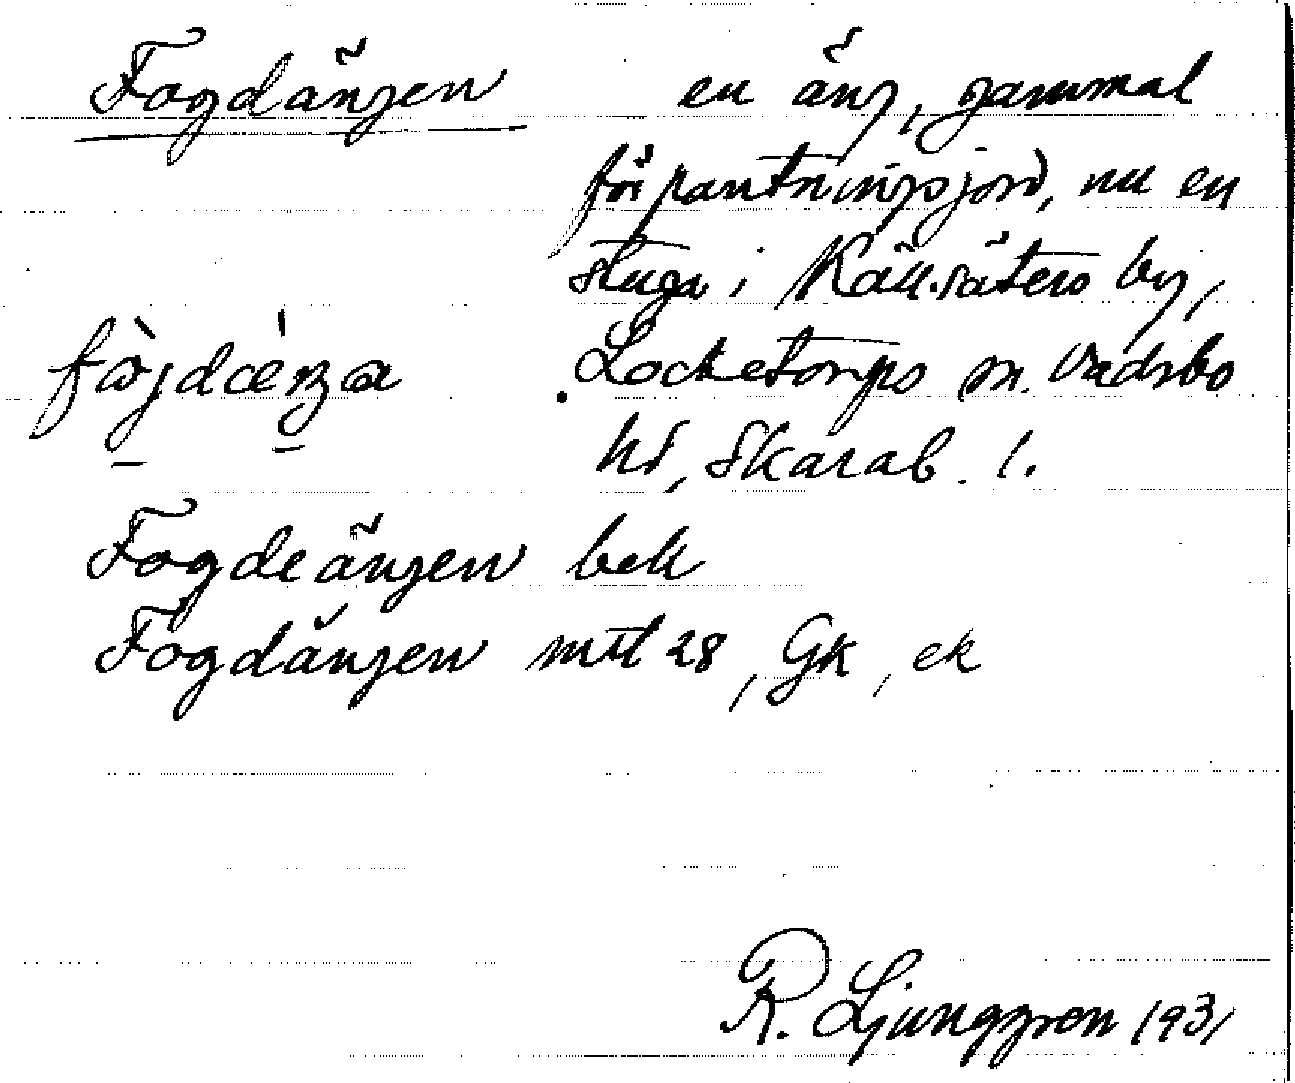 Fogdängen en äng, gammal
förpantningsjord, nu en
stuga i Källsäters by,
fò̱gdæ̀ŋa Locketorps sn. Vadsbo
hd, Skarab. l.
Fogdeängen bek
Fogdängen mtl 28, Gk, ek
R. Ljunggren 1931